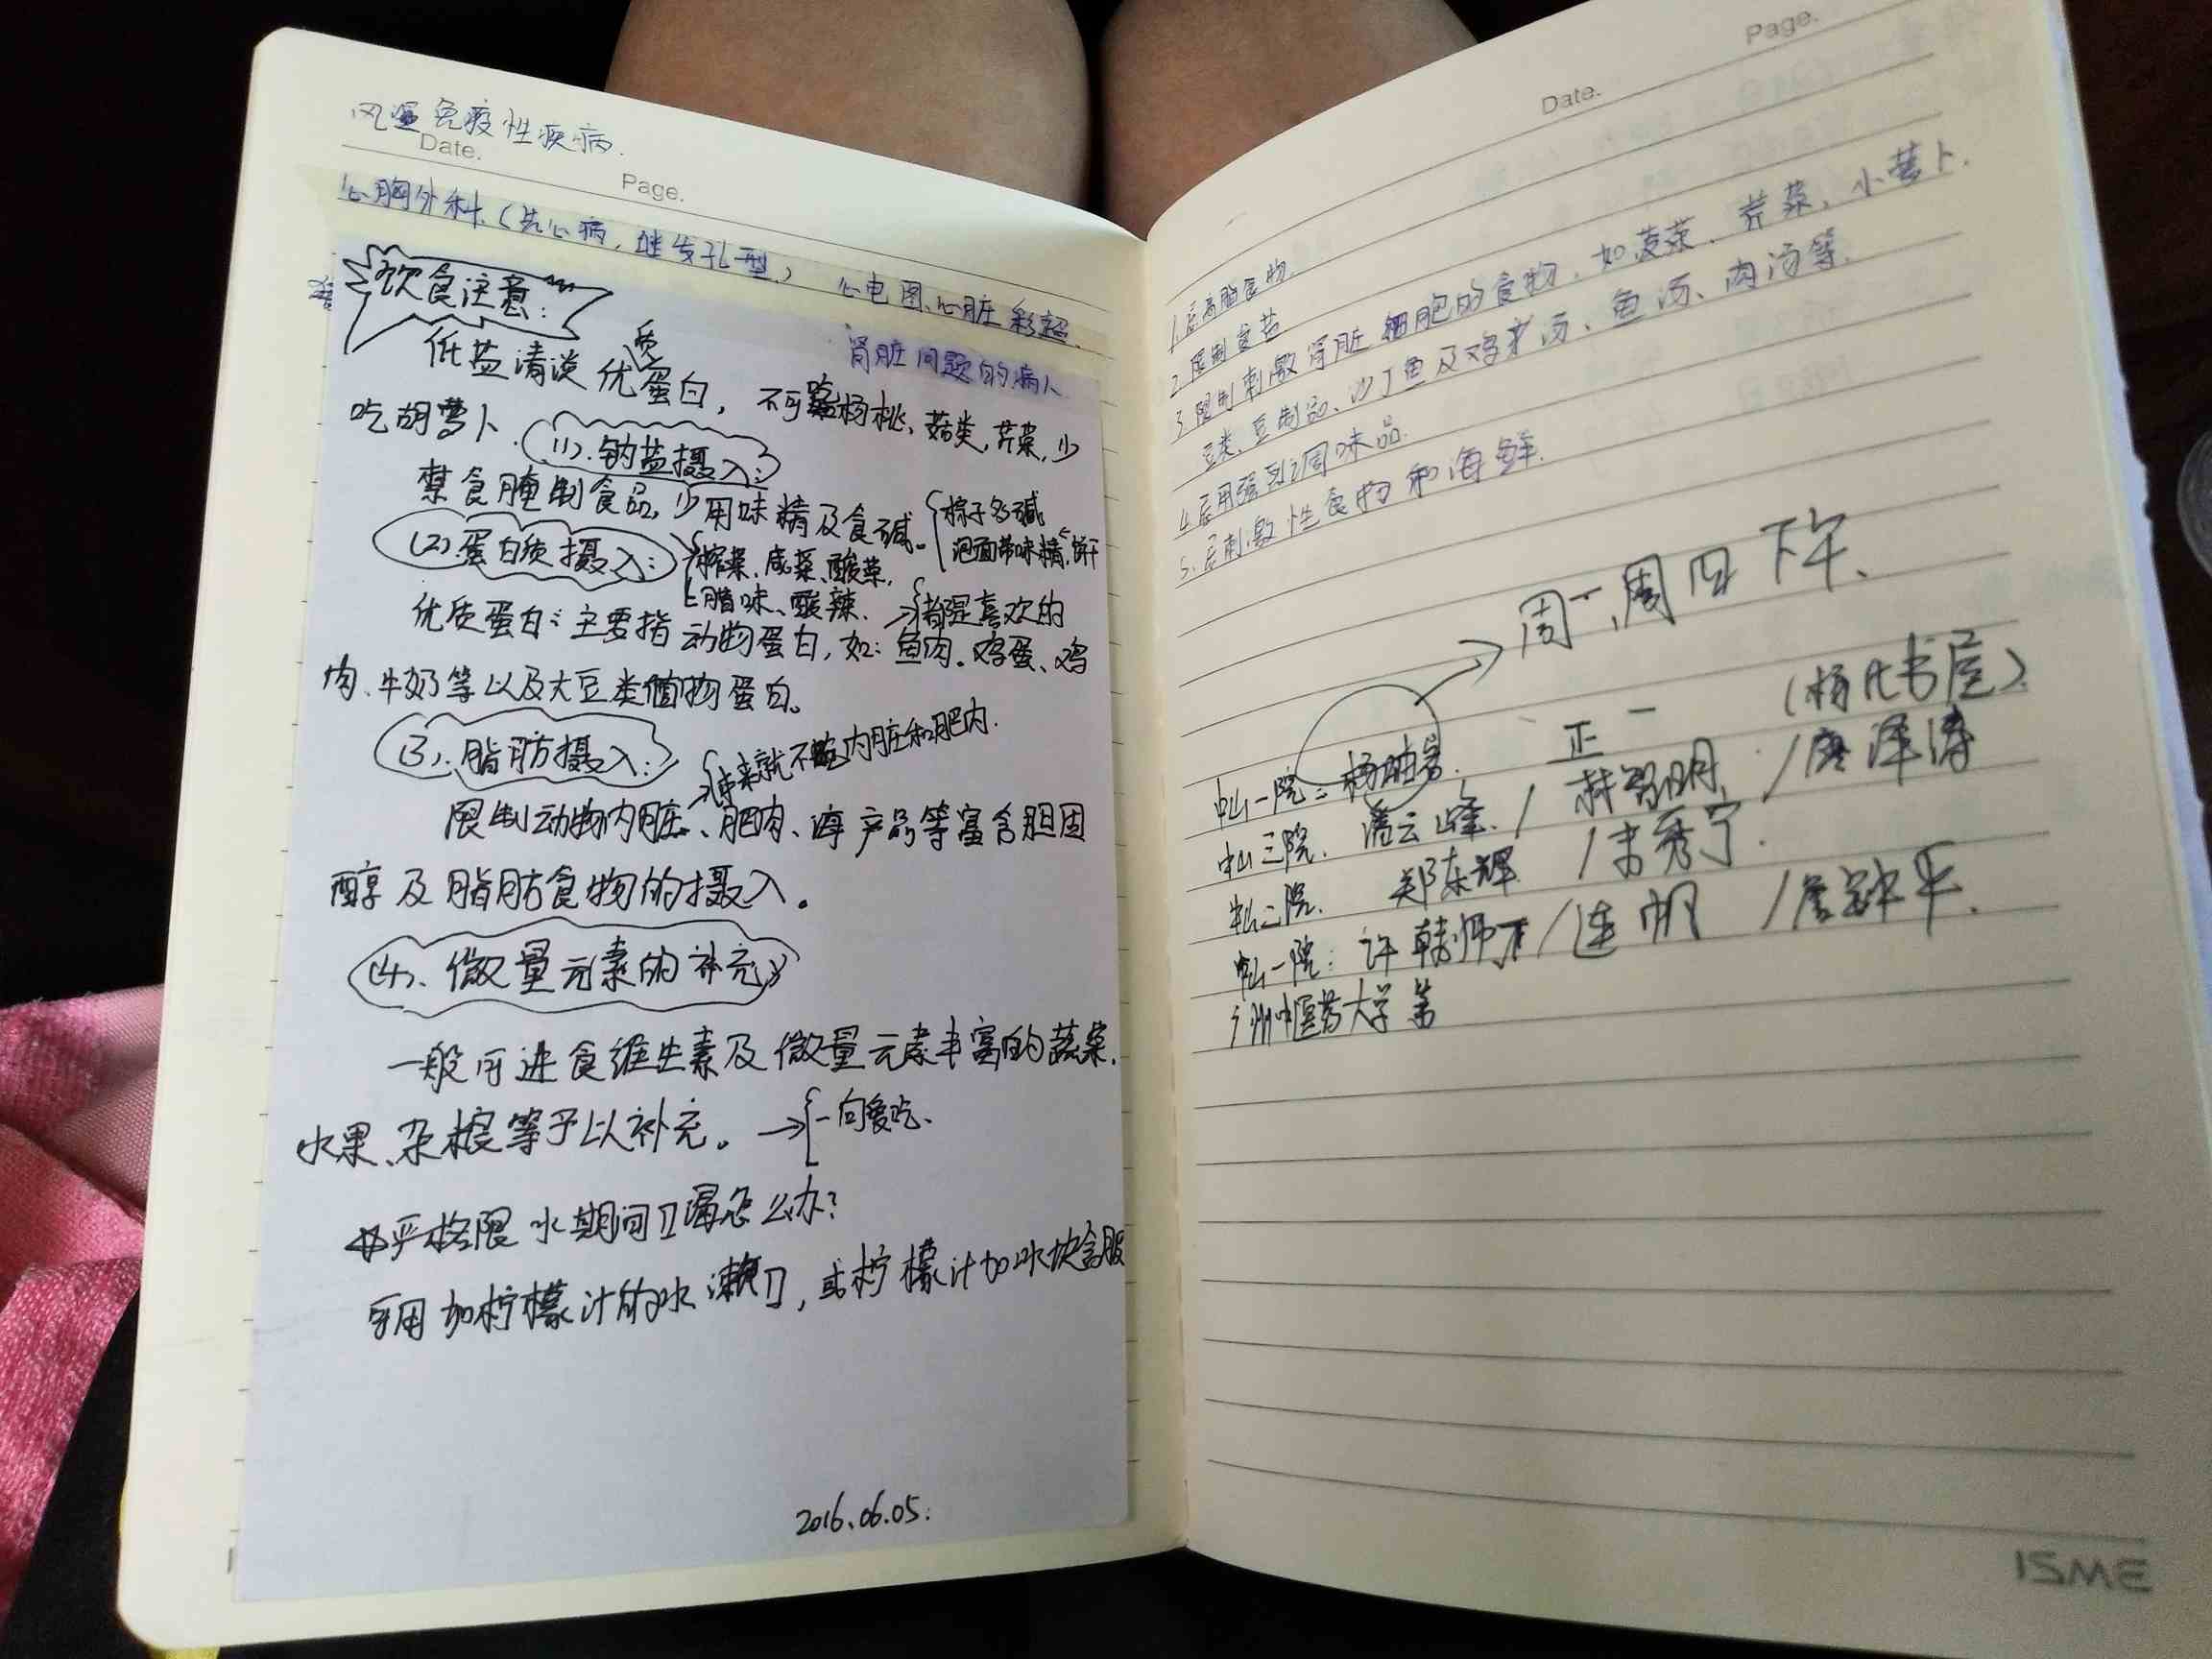 风湿免疫性疾病.
Date.
Page.
心胸外科(先心病,继发孔型)
心电图、心脏彩超.
肾脏问题的病人
饮食注意:
低盐清淡优质蛋白,不可吃杨桃、菇类,芹菜,少
吃胡萝卜.
(1).钠盐摄入:
禁食腌制食品,少用味精及食碱。
粽子多碱
泡面带味精,饼干
(2)蛋白质摄入:
榨菜、咸菜、酸菜,
腊味、酸辣、
都是喜欢的
优质蛋白:主要指动物蛋白,如:鱼肉。鸡蛋、鸡
肉、牛奶等以及大豆类植物蛋白。
(3).脂肪摄入:
本来就不吃内脏和肥肉.
限制动物内脏、肥肉、海产品等富含胆固
醇及脂肪食物的摄入。
(4)、微量元素的补充:
一般可进食维生素及微量元素丰富的蔬菜.
水果、杂粮等予以补充。
一向爱吃、
严格限水期间口渴怎么办?
可用加柠檬汁的水漱口,或柠檬汁加冰块含服
2016.06.05.
Date.
Page.
1.忌高脂食物
2.限制食盐
3.限制刺激肾脏细胞的食物,如菠菜、芹菜、小萝卜.
豆类、豆制品、沙丁鱼及鸡汤、鱼汤、肉汤等.
4.忌用强烈调味品.
5.忌刺激性食物和海鲜.
周一,周四下午、
正一
中山一院:杨岫岩.
中山三院.潘云峰./林智明./廖泽涛
中山二院.郑东辉/韦秀宁.
中山一院:许韩师/连帆/詹钟平.
广州中医药大学第
ISME